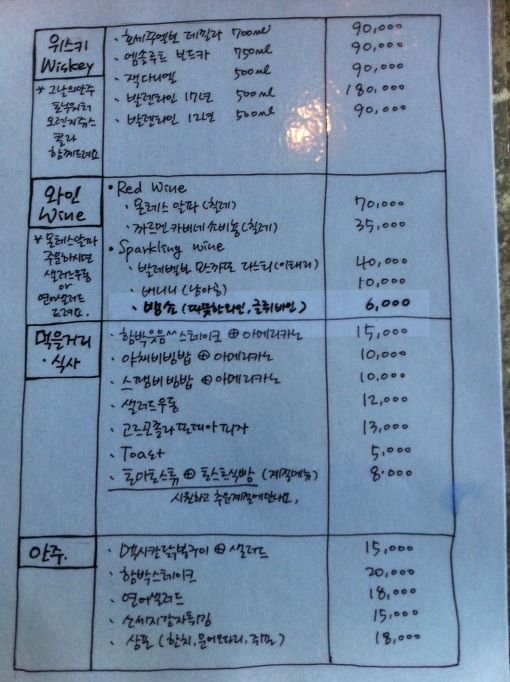 위스키
Wiskey
* 그날의안주
토닉워터
오렌지쥬스
콜라
함께드려요
· 호세꾸엘보 데낄라 700ml 90,000
· 엡솔루트 보드카 750ml 90,000
· 잭다니엘 500ml 90,000
· 발렌타인 17년 500ml 180,000
· 발렌타인 12년 500ml 90,000
와인
Wine
* 몬테스알파
주문하시면
샐러드우동
or
연어샐러드
드려요.
• Red Wine
· 몬테스 알파 (칠레) 70,000
· 까르멘 카버네 쇼비뇽 (칠레) 35,000
• Sparkling wine
· 발레벨보 모스까또 다스티 (이태리) 40,000
· 버니니 (남아공) 10,000
· 뱅쇼 (따뜻한와인, 글뤼바인) 6,000
먹을거리
· 식사
· 함박웃음^^스테이크 ⊕ 아메리카노 15,000
· 야채비빔밥 ⊕ 아메리카노 10,000
· 스팸비빔밥 ⊕ 아메리카노 10,000
· 샐러드우동 12,000
· 고르곤졸라 또띠아피자 13,000
· Toast 5,000
· 토마토스튜 ⊕ 토스트식빵 (계절메뉴) 8,000
시원하고 추운계절에만나요.
안주.
· 멕시칼닭봉구이 ⊕ 샐러드 15,000
· 함박스테이크 20,000
· 연어샐러드 18,000
· 소세지감자튀김 15,000
· 상포 (한치, 문어오다리, 쥐포) 18,000